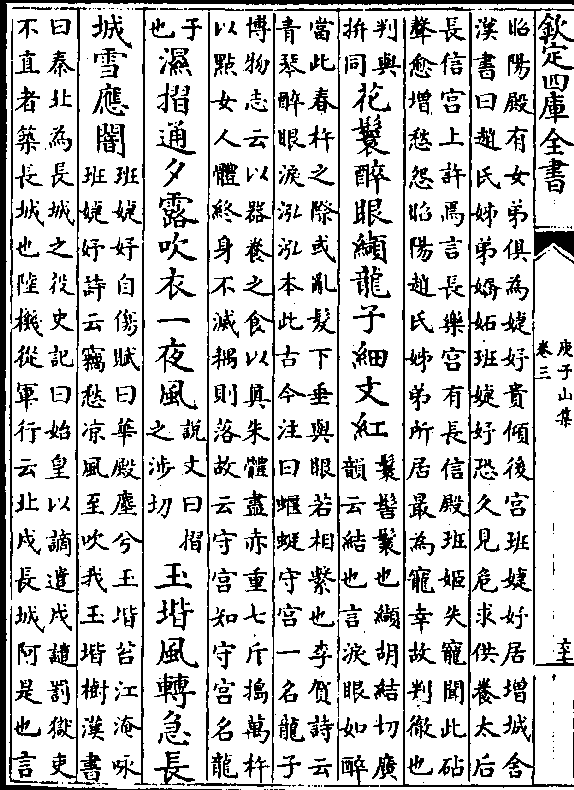 欽定四庫全書
庾子山集
卷三
六十五
昭陽殿有女弟俱為婕妤貴傾後宮班婕妤居增城舍
漢書曰趙氏姊弟嬌妬班婕妤恐久見危求供養太后
長信宮上許焉言長樂宮有長信殿班姬失寵聞此砧
聲愈增愁怨昭陽趙氏姊弟所居最為寵幸故判徹也
判與
拚同
花鬟醉眼纈龍子細文紅
鬟髻鬟也纈胡結切廣
韻云結也言淚眼如醉
當此春杵之際或亂髮下垂與眼若相繫也李賀詩云
青琴醉眼淚泓泓本此古今注曰蝘蜓守宮一名龍子
博物志云以器養之食以真朱體盡赤重七斤搗萬杵
以點女人體終身不滅耦則落故云守宮知守宮名龍
子
也
濕摺通夕露吹衣一夜風
說文曰摺
之涉切
玉堦風轉急長
城雪應闇
班婕妤自傷賦曰華殿塵兮玉堦苔江淹咏
班婕妤詩云竊愁凉風至吹我玉堦樹漢書
曰秦北為長城之役史記曰始皇以謫遣戍譴罰獄吏
不直者築長城也陸機從軍行云北戍長城阿是也言